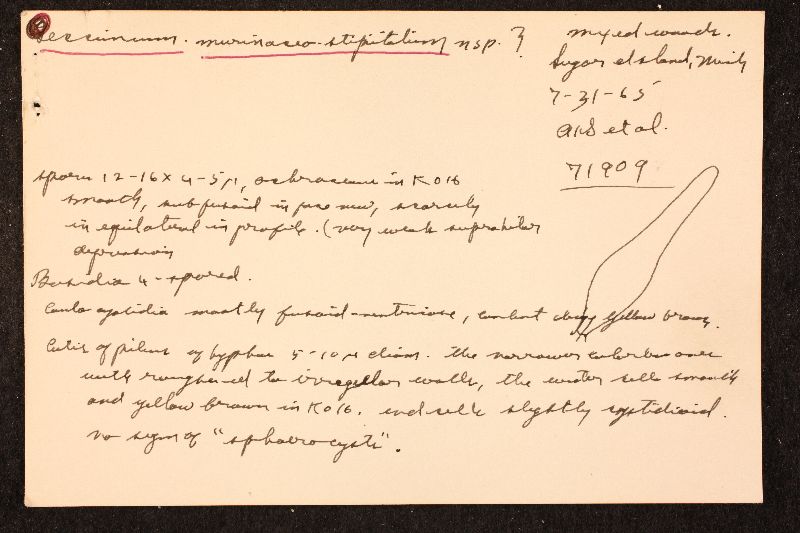 Leccinum. murinaceo-stipitatum nsp. ?
mixed woods.
Sugar Island, Mich
7-31-65
AHS et al.
71909
spores 12-16 x 4-5 µ, ochraceous in KOH
smooth, subfusoid in face view, scarcely
inequilateral in profile. (very weak suprahilar
depression
Basidia 4-spored.
Caulocystidia mostly fusoid-ventricose, content yellow brown.
Cutis of pileus of hyphae 5-10 µ diam. the narrower ones
with roughened to irregular walls, the wider cells smooth
and yellow brown in KOH. end cells slightly cystidioid.
no sign of "sphaerocysts".